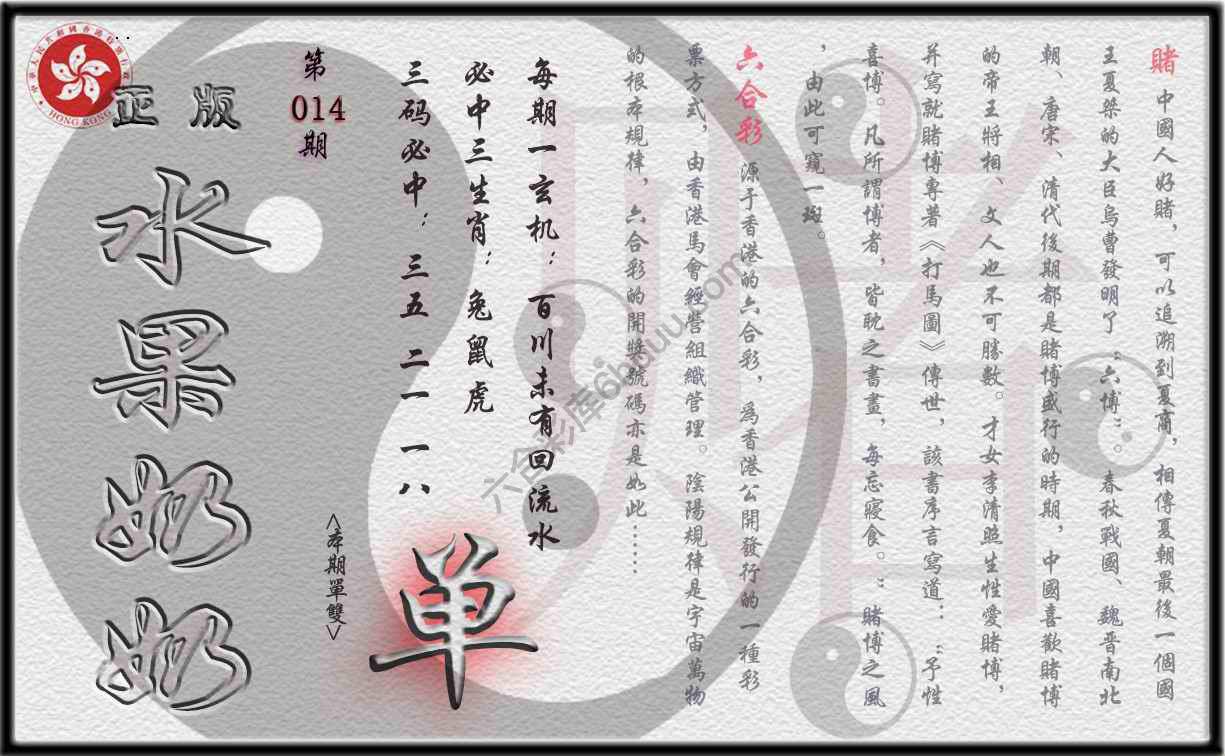 賭 中國人好賭，可以追溯到夏商，相傳夏朝最後一個國
王夏桀的大臣烏曹發明了“六博”。春秋戰國、魏晋南北
朝、唐宋、清代後期都是賭博盛行的時期，中國喜歡賭博
的帝王將相、文人也不可勝數。才女李清照生性愛賭博，
并寫就賭博專著《打馬圖》傳世，該書序言寫道：“予性
喜博。凡所謂博者，皆耽之書畫，每忘寢食。”賭博之風
，由此可窺一斑。
六合彩 源于香港的六合彩，爲香港公開發行的一種彩
票方式，由香港馬會經營組織管理。陰陽規律是宇宙萬物
的根本規律，六合彩的開獎號碼亦是如此……
每期一玄机：百川未有回流水
必中三生肖：兔鼠虎
三码必中：三五 二一 一八
第
014
期
<本期單雙>
单
正版
水果奶奶
中華人民共和國香港特別行政區
HONG KONG
六合彩库6hduu.com